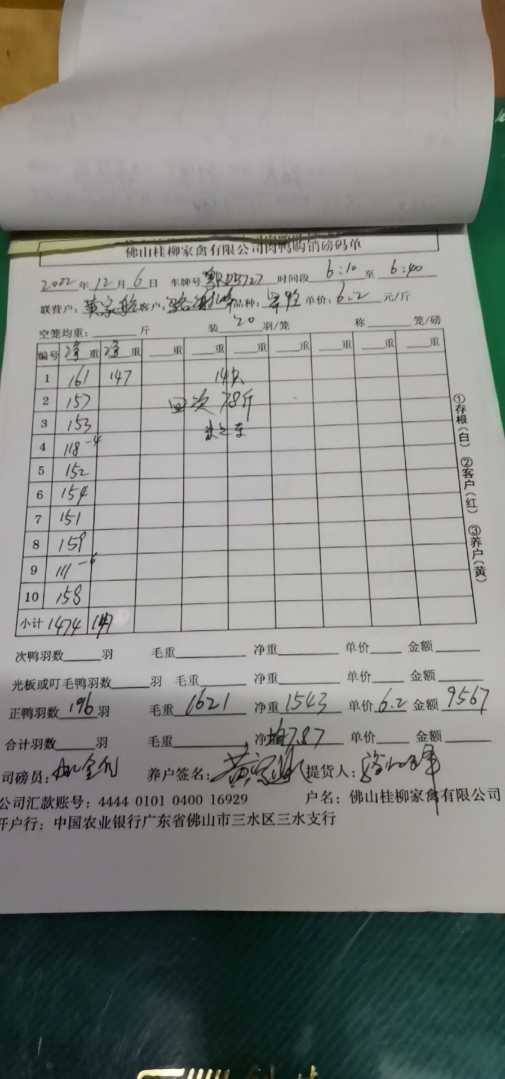 佛山桂柳家禽有限公司肉鸭购销磅码单
2022年12月6日 车牌号 时间段 6:10 至 6:40
联营户: 客户: 品种: 单价:6.2 元/斤
空笼均重: 斤 装 20 羽/笼 称 笼/磅
编号 净重 净重 重 重 重 重 重 重
1 161 147 14只
2 157 回次 78斤
3 153
4 118-4
5 152
6 154
7 151
8 159
9 111-6
10 158
小计 1474 147
①存根(白) ②客户(红) ③养户(黄)
次鸭羽数 羽 毛重 净重 单价 金额
光板或叮毛鸭羽数 羽 毛重 净重 单价 金额
正鸭羽数 196 羽 毛重 1621 净重 1543 单价 6.2 金额 9567
合计羽数 羽 毛重 净 7.87 单价 金额
司磅员: 养户签名: 提货人:
公司汇款账号:4444 0101 0400 16929 户名:佛山桂柳家禽有限公司
开户行:中国农业银行广东省佛山市三水区三水支行